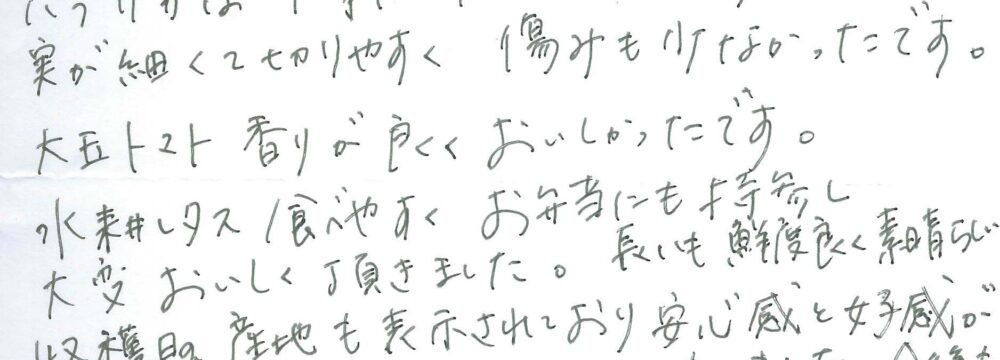 実が細くて切りやすく 傷みも少なかったです。
大玉トマト 香りが良くく おいしかったです。
水耕レタス 食べやすく お弁当にも持参し
大変おいしく頂きました。 長いも 鮮度良く素晴らしい
収穫日の産地も表示されており安心感と好感が